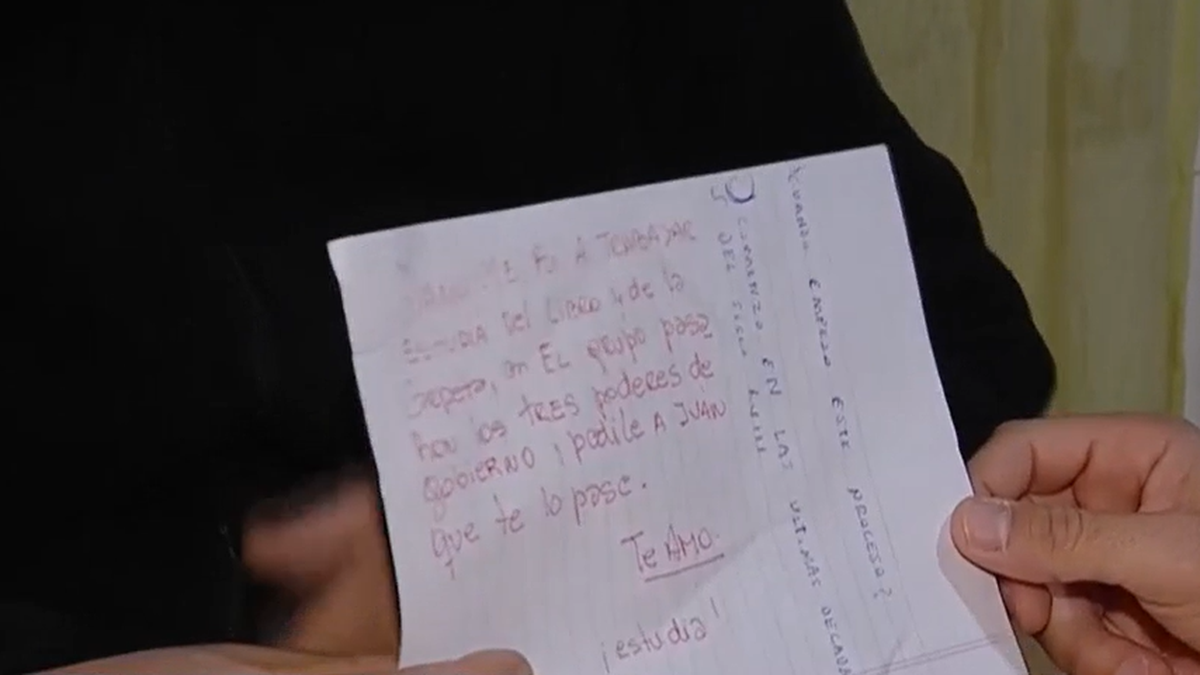 ME FUI A TRABAJAR
ESTUDIA DEL LIBRO y de la
CARPETA, en EL grupo pasa
ron los TRES poderes de
GOBIERNO ¡ pedile A JUAN
que te lo pase.
Te AMO.
¡estudia!
CUANDO EMPEZO ESTE PROCESO?
COMIENZO EN LAS ULTIMAS DECADA
DEL SIGLO